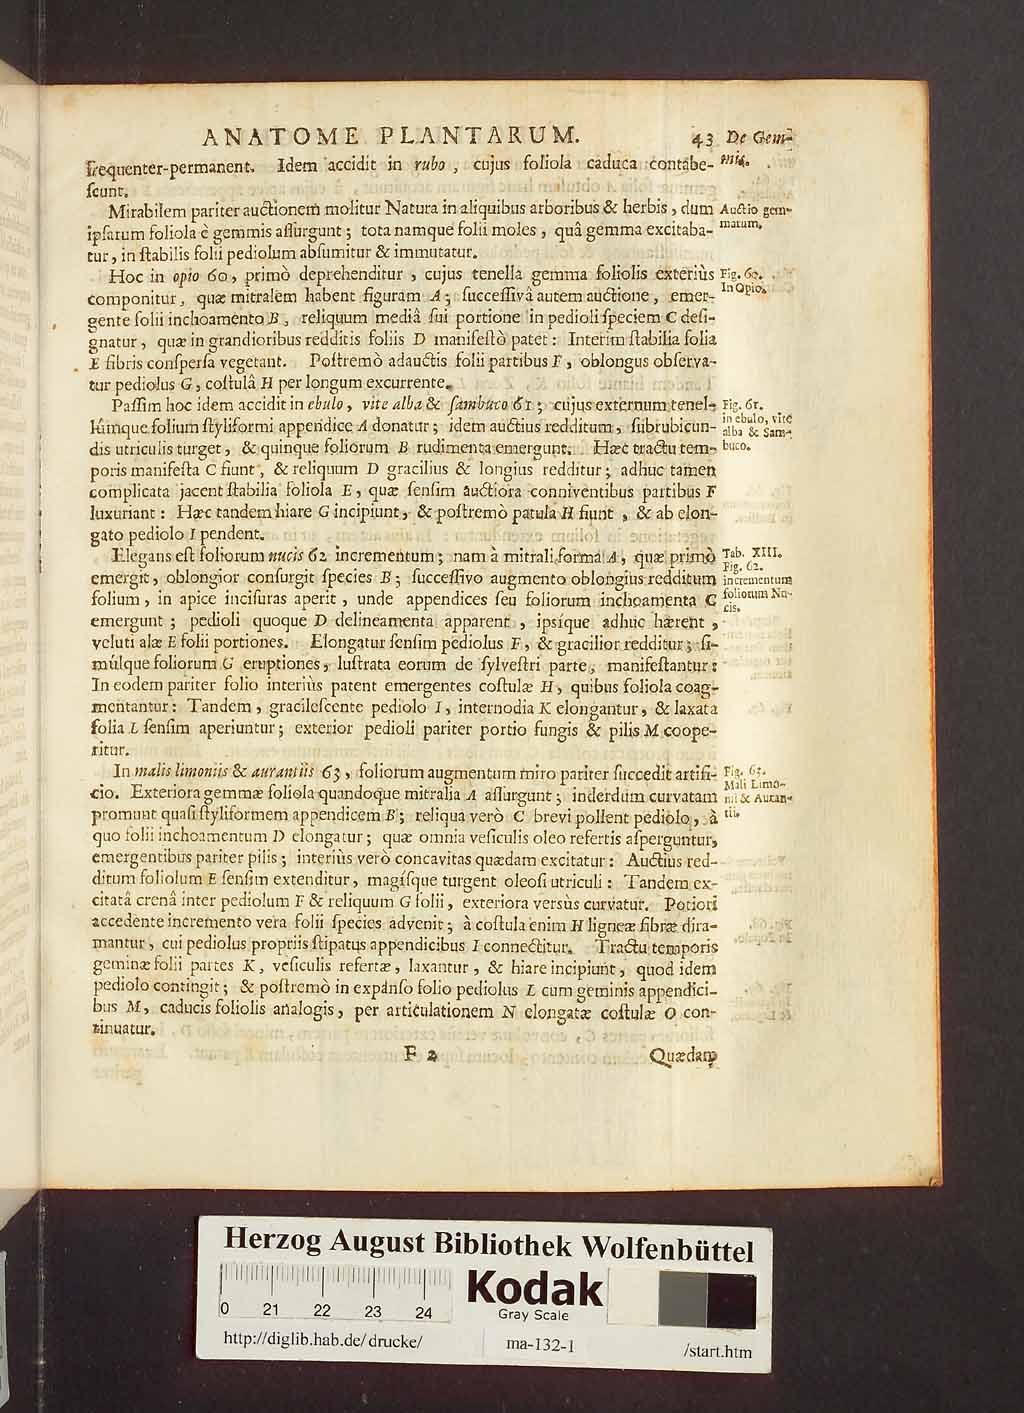 ANATOME PLANTARUM. 43 De Gem-
mis.
frequenter-permanent. Idem accidit in rubo, cujus foliola caduca contabe-
ſcunt.
Mirabilem pariter auctionem molitur Natura in aliquibus arboribus & herbis, dum
ipſarum foliola è gemmis aſſurgunt; tota namque folii moles, quâ gemma excitaba-
tur, in ſtabilis folii pediolum abſumitur & immutatur.
Auctio gem-
marum.
Hoc in opio 60, primò deprehenditur, cujus tenella gemma foliolis exteriùs
componitur, quæ mitralem habent figuram A; ſucceſſivâ autem auctione, emer-
gente folii inchoamento B, reliquum mediâ ſui portione in pedioli ſpeciem C deſi-
gnatur, quæ in grandioribus redditis foliis D manifeſtò patet: Interim ſtabilia folia
E fibris conſperſa vegetant. Poſtremò adauctis folii partibus F, oblongus obſerva-
tur pediolus G, coſtulâ H per longum excurrente.
Fig. 60.
In Opio.
Paſſim hoc idem accidit in ebulo, vite alba & ſambuco 61; cujus externum tenel-
lúmque folium ſtyliformi appendice A donatur; idem auctius redditum, ſubrubicun-
dis utriculis turget, & quinque foliorum B rudimenta emergunt. Hæc tractu tem-
poris manifeſta C fiunt, & reliquum D gracilius & longius redditur; adhuc tamen
complicata jacent ſtabilia foliola E, quæ ſenſim auctiora conniventibus partibus F
luxuriant: Hæc tandem hiare G incipiunt, & poſtremò patula H fiunt, & ab elon-
gato pediolo I pendent.
Fig. 61.
in ebulo, vite
alba & Sam-
buco.
Elegans eſt foliorum nucis 62 incrementum; nam à mitrali forma A, quæ primò
emergit, oblongior conſurgit ſpecies B; ſucceſſivo augmento oblongius redditum
folium, in apice inciſuras aperit, unde appendices ſeu foliorum inchoamenta C
emergunt; pedioli quoque D delineamenta apparent, ipſíque adhuc hærent,
veluti alæ E folii portiones. Elongatur ſenſim pediolus F, & gracilior redditur; ſi-
múlque foliorum G eruptiones, luſtrata eorum de ſylveſtri parte, manifeſtantur:
In eodem pariter folio interiùs patent emergentes coſtulæ H, quibus foliola coag-
mentantur: Tandem, gracileſcente pediolo I, internodia K elongantur, & laxata
folia L ſenſim aperiuntur; exterior pedioli pariter portio fungis & pilis M coope-
ritur.
Tab. XIII.
Fig. 62.
incrementum
foliorum Nu-
cis.
In malis limoniis & aurantiis 63, foliorum augmentum miro pariter ſuccedit artifi-
cio. Exteriora gemmæ foliola quandoque mitralia A aſſurgunt; inderdum curvatam
promunt quaſi ſtyliformem appendicem B; reliqua verò C brevi pollent pediolo, à
quo folii inchoamentum D elongatur; quæ omnia veſiculis oleo refertis aſperguntur,
emergentibus pariter pilis; interiùs verò concavitas quædam excitatur: Auctius red-
ditum foliolum E ſenſim extenditur, magíſque turgent oleoſi utriculi: Tandem ex-
citatâ crenâ inter pediolum F & reliquum G folii, exteriora versùs curvatur. Potiori
accedente incremento vera folii ſpecies advenit; à coſtula enim H ligneæ fibræ dira-
mantur, cui pediolus propriis ſtipatus appendicibus I connectitur. Tractu temporis
geminæ folii partes K, veſiculis refertæ, laxantur, & hiare incipiunt, quod idem
pediolo contingit; & poſtremò in expanſo folio pediolus L cum geminis appendici-
bus M, caducis foliolis analogis, per articulationem N elongatæ coſtulæ O con-
tinuatur.
Fig. 63.
Mali Limo-
nii & Auran-
tii.
F 2 Quædam
Herzog August Bibliothek Wolfenbüttel
0 21 22 23 24
Kodak
Gray Scale
http://diglib.hab.de/drucke/ ma-132-1 /start.htm